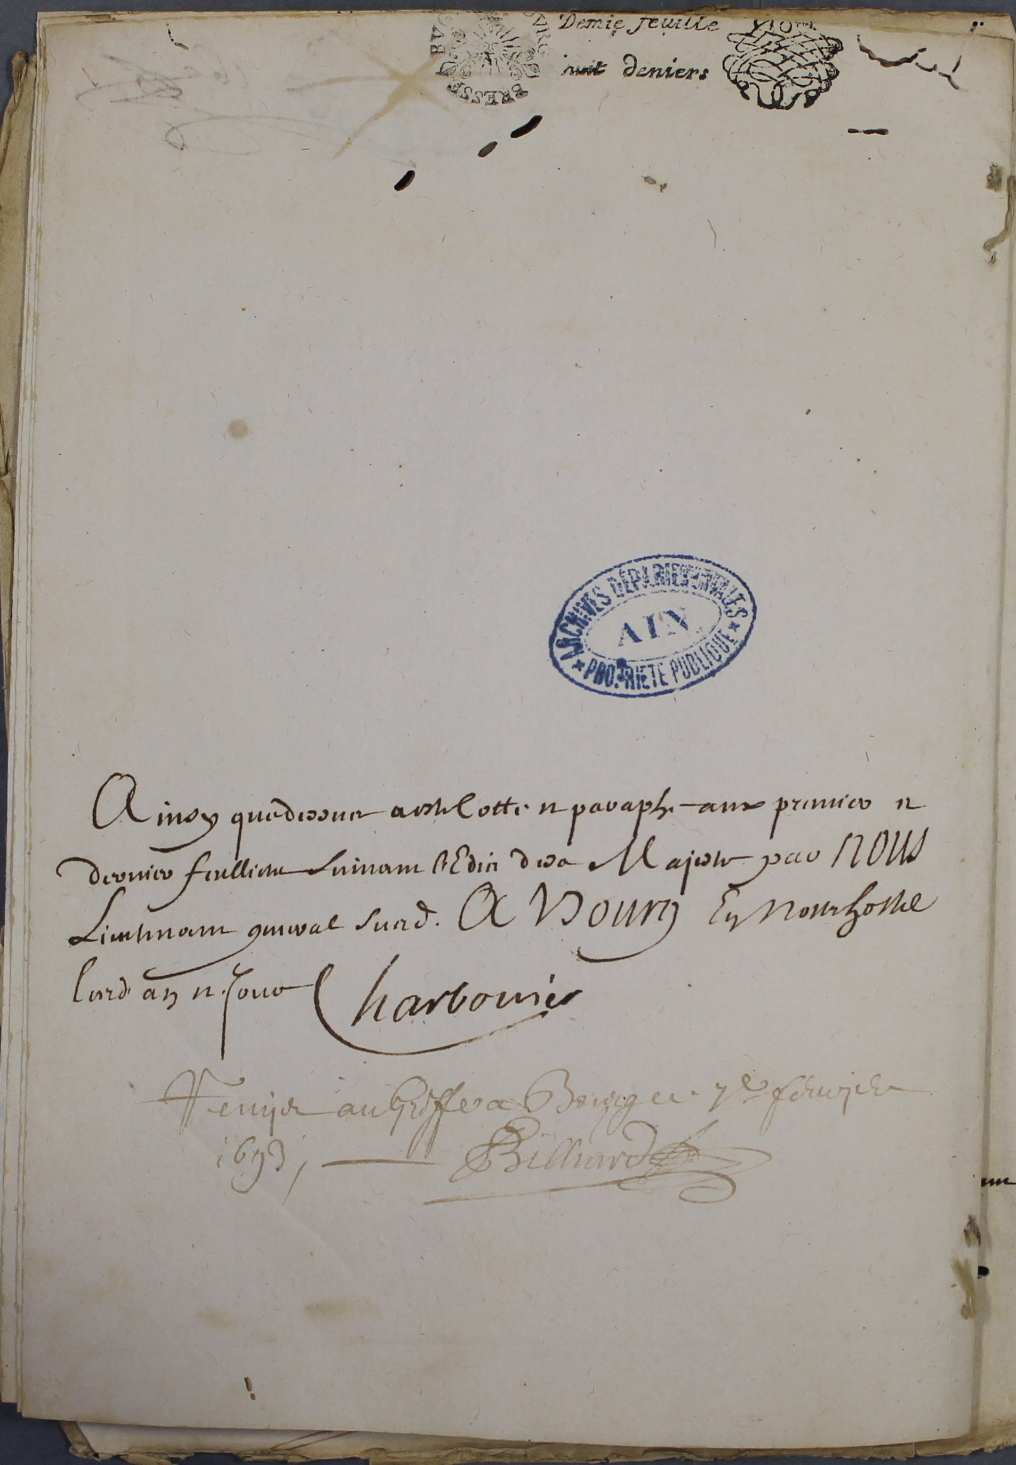 BUG OURG BRESSE
Demie feuille
huit deniers
ARCHIVES DÉPARTEMENTALES
AIN
PROPRIÉTÉ PUBLIQUE
Ainsy que dessus a esté Cotté et paraphé aux premier et
dernier feullietz suivant l'Edict de sa Majesté par NOUS
Lieutenant general susd. A Bourg En nostre hostel
lesd an et jour Charbonier
Remise au Greffe a Bourg ce 7e febvrier
1693 Billiard